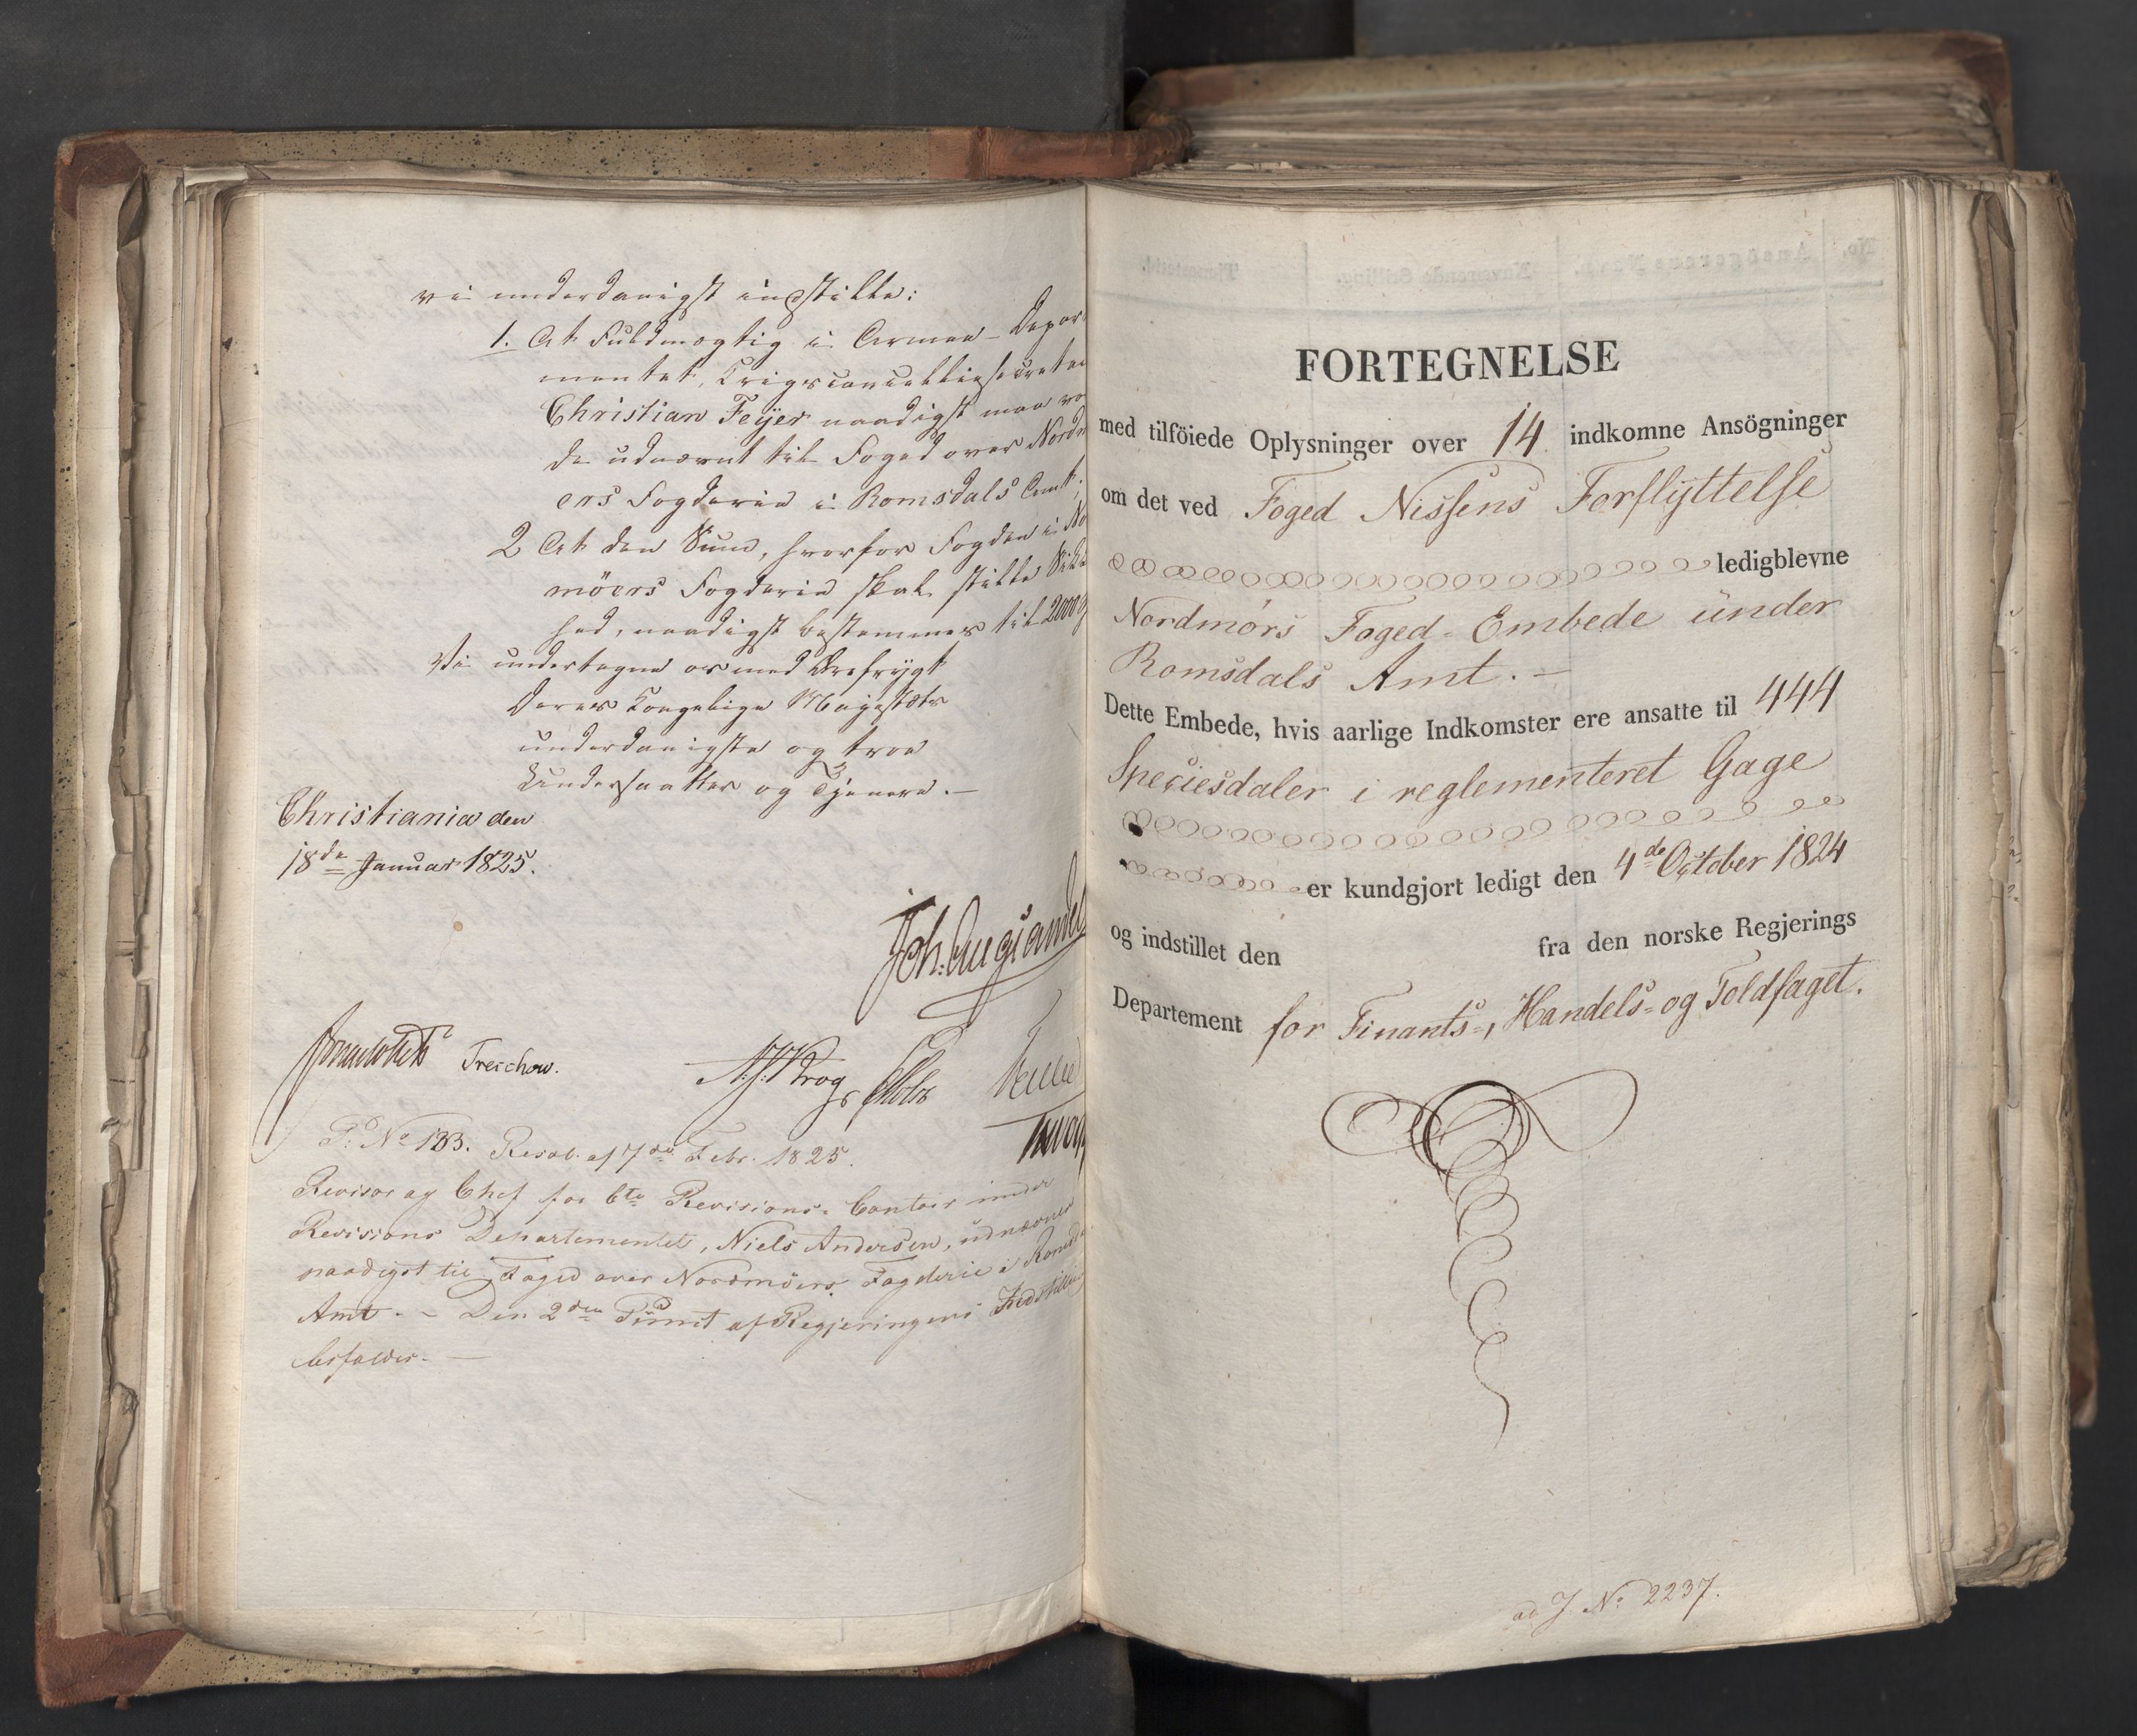 vi underdanigst indstille:
1. At Fuldmægtig i Armee-Depar
mentet, Krigscancelliesecretai
Christian Feÿer naadigst maa vo
de udnævnt til Foged over Nordm
ørs Fogderie i Romsdals Amt;
2 At den Sum, hvorfor Fogden i No
möers Fogderie skal stille Sikk
hed, naadigst bestemmes til 2000
Vi undertegne os med Ærefrygt
Deres Kongelige Majestæts
underdanigste og troe
Undersaatter og Tjenere.—
Christiania den
18de Januar 1825.
Joh: Aug: Sandel
Treschow.
P: No 133. Resol. af 7de Febr. 1825.
Revisor og Chef for 6te Revisions-Contoir under
Revisions Departementet, Niels Andersen, udnævnes
naadigst til Foged over Nordmöers Fogderie i Romsd
Amt. – Den 2den Punct af Regjeringens Indstilling
bifaldes. —
FORTEGNELSE
med tilföiede Oplysninger over 14 indkomne Ansögninger
om det ved Foged Nissens Forflÿttelse
ledigblevne
Nordmørs Foged-Embede under
Romsdals Amt.—
Dette Embede, hvis aarlige Indkomster ere ansatte til 444
Speciesdaler i reglementeret Gage
er kundgjort ledigt den 4de October 1824
og indstillet den fra den norske Regjerings
Departement for Finants-, Handels- og Toldfaget.
ad J. No 2237.